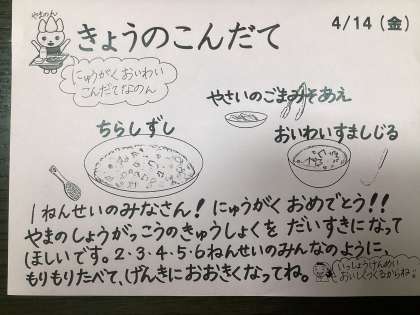 やまのん
きょうのこんだて
4/14(金)
にゅうがくおいわい
こんだてなのん
やさいのごまみそあえ
ちらしずし
おいわいすましじる
1ねんせいのみなさん!にゅうがくおめでとう!!
やまのしょうがっこうのきゅうしょくをだいすきになって
ほしいです。2・3・4・5・6ねんせいのみんなのように、
もりもりたべて、げんきにおおきくなってね。
いっしょうけんめい
おいしくつくるからね!